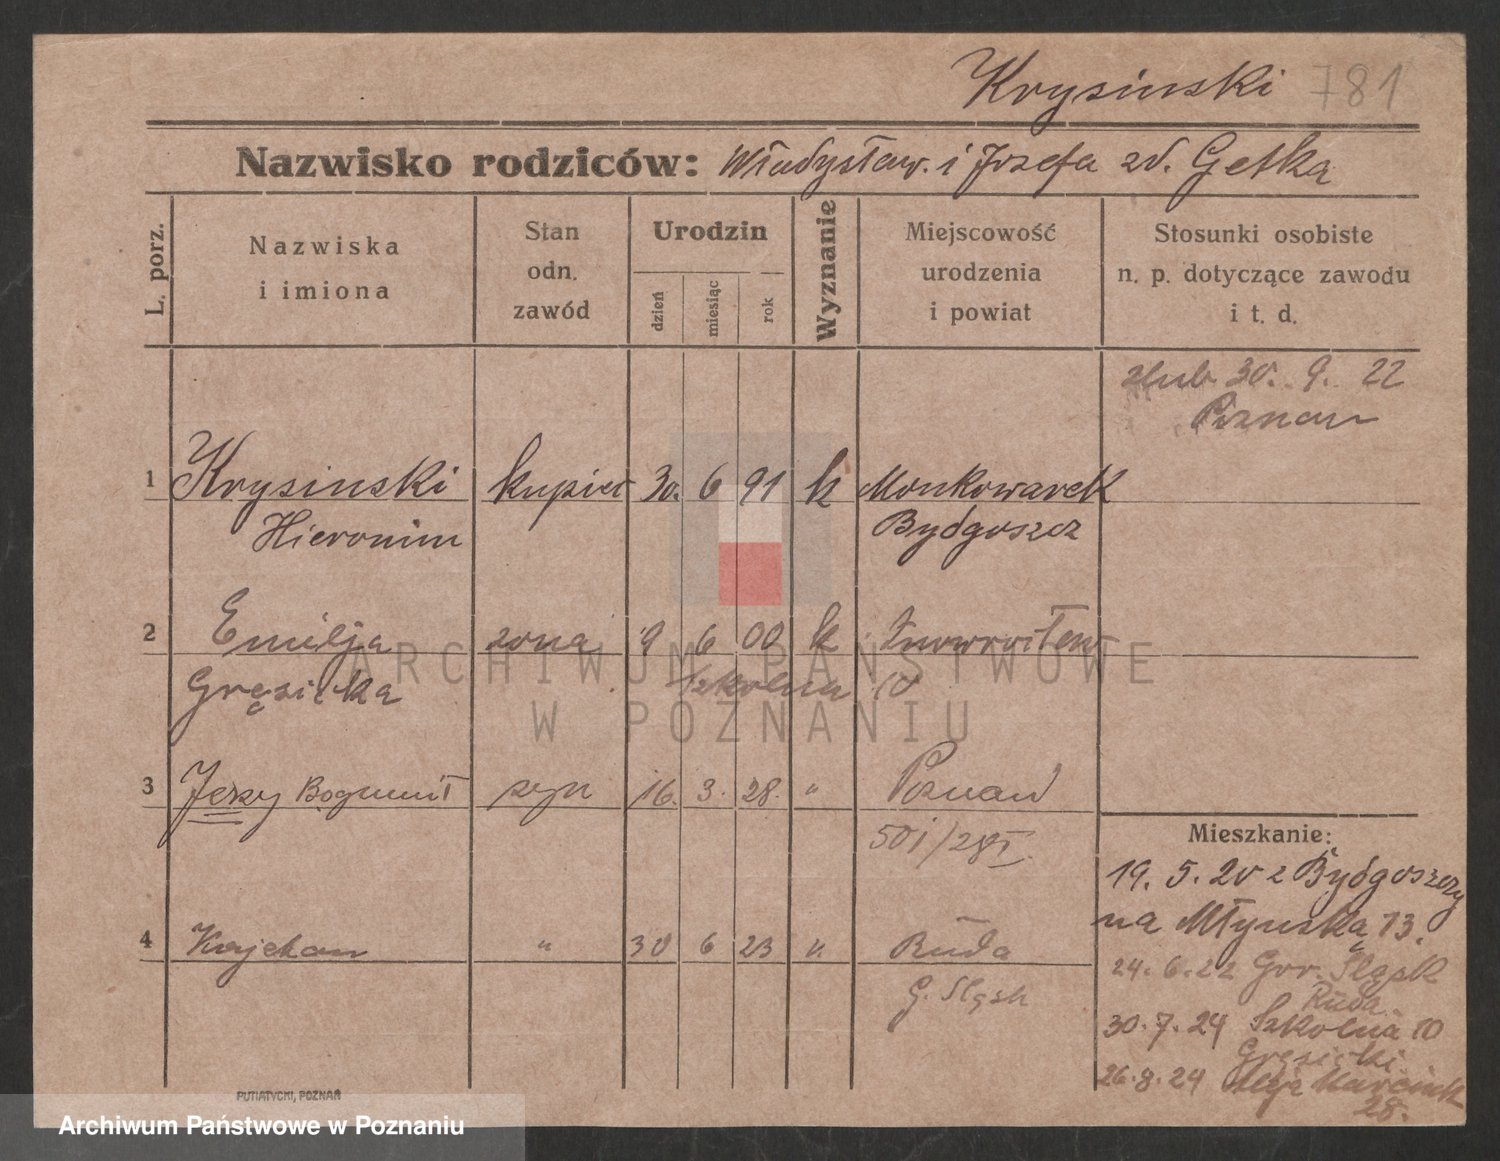 Krysinski 781
Nazwisko rodziców: Władysław. i Jozefa zd. Getka
L. porz.
Nazwiska
i imiona
Stan
odn.
zawód
Urodzin
dzień
miesiąc
rok
Wyznanie
Miejscowość
urodzenia
i powiat
Stosunki osobiste
n. p. dotyczące zawodu
i t. d.
zlub 30. 9. 22
Poznan
1 Krysinski kupiec 30. 6 91 k Monkowarek
Hieronim Bydgoszcz
2 Emilja zona 9 6 00 k Inowrocław
Gręsicka Szkolna 10
3 Jerzy Bogumił syn 16. 3. 28. " Poznań
501/28I.
Mieszkanie:
19. 5. 20 z Bydgoszczy
na Młyńską 13.
4 " 30 6 23 " Ruda
G. Sląsk
24. 6. 22 Gor. Sląsk
Ruda.
30. 7. 24 Szkolna 10
Gręsicki.
26. 8. 24 Aleja Marcink
28.
PUTIATYCKI, POZNAŃ
ARCHIWUM PAŃSTWOWE
W POZNANIU
Archiwum Państwowe w Poznaniu